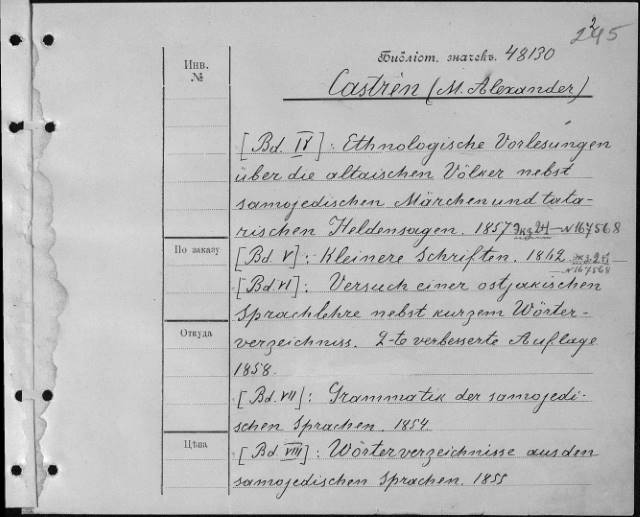 2295
Библіот. значекъ. 48130
Инв.
№
Castrén (M. Alexander)
[Bd. IV]: Ethnologische Vorlesungen
über die altaischen Völker nebst
samojedischen Märchen und tata-
rischen Heldensagen. 1857 Экз 2й — N167568
По заказу
[Bd. V]: Kleinere Schriften. 1862. Экз. 2й
— N167568
[Bd. VI]: Versuch einer ostjakischen
Sprachlehre nebst kurzem Wörter-
Откуда
verzeichniss. 2-te verbesserte Auflage
1858.
[Bd. VII]: Grammatik der samojedi-
schen Sprachen. 1854.
Цѣна
[Bd. VIII]: Wörterverzeichnisse aus den
samojedischen Sprachen. 1855